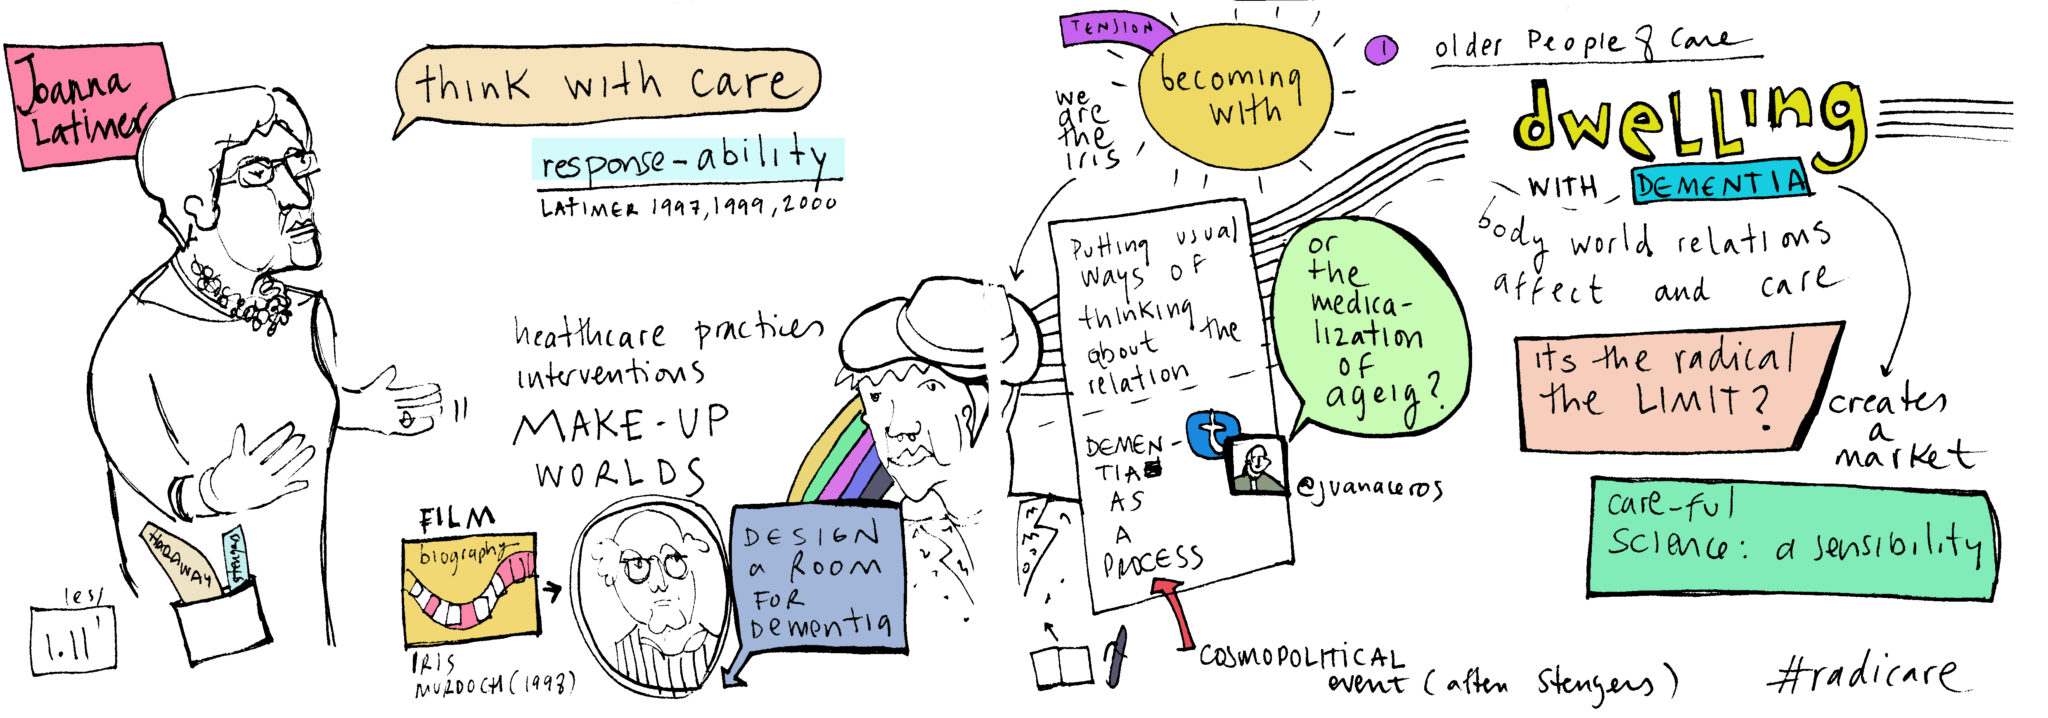 Joanna
Latimer
think with care
response-ability
LATIMER 1997, 1999, 2000
healthcare practices
interventions
MAKE-UP
WORLDS
FILM
biography
IRIS
MURDOCH (1998)
DESIGN
a ROOM
FOR
Dementia
HARAWAY
stengers
1.11'
TENSION
becoming
with
we
are
the
iris
Putting usual
ways of
thinking
about the
relation
DEMEN-
TIA
AS
A
PROCESS
or
the
medica-
lization
of
ageig?
t
@juanaceros
COSMOPOLITICAL
event (after Stengers)
1
older People & Care
dwelling
WITH DEMENTIA
body world relations
affect and care
its the radical
the LIMIT?
creates
a
market
care-ful
science: a sensibility
#radicare